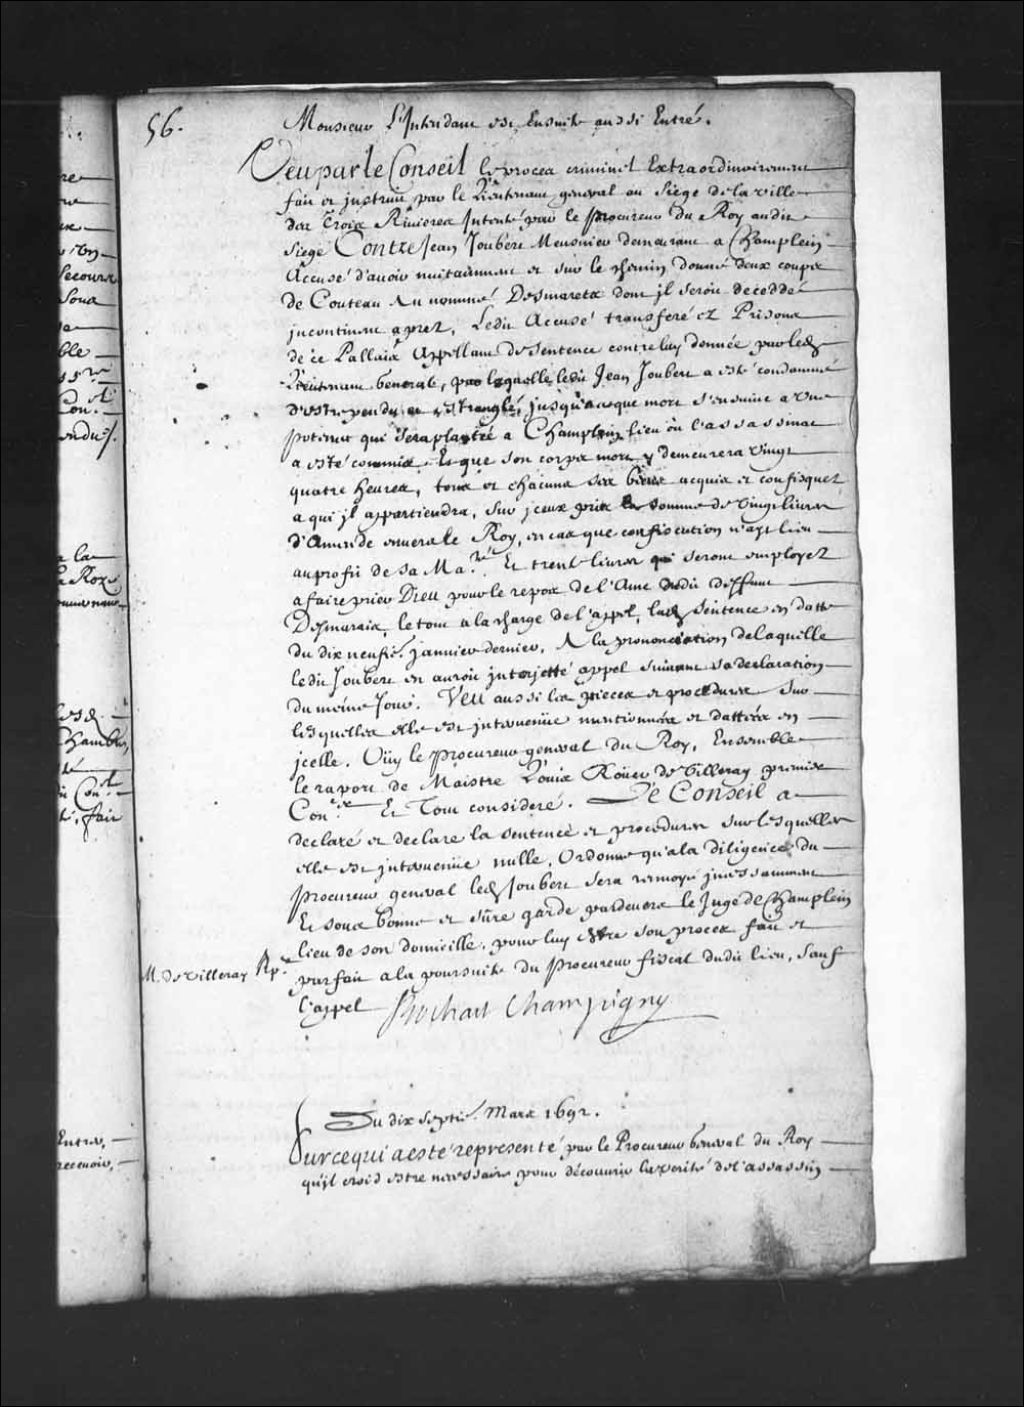 56.
Monsieur L'Intendant est Ensuite aussi Entré.
Veu par le Conseil le procez criminel Extraordinairement
fait et jnstruit par le Lieutenant general au Siege de la ville
des Trois Rivieres Intenté par le procureur du Roy audit
Siege Contre Jean Joubert Meusnier demeurant a Champlein
Accusé d'avoir nuitamment et sur le chemin donné deux coups
de Couteau Au nommé Desmarets dont jl seroit deceddé
jncontinent aprez, Ledit Accusé transferé ez Prisons
de ce Pallais Appellant de sentence contre luy donnée par led.
Lieutenant General, par laquelle ledit Jean Joubert a esté condamné
d'estre pendu et Estranglé, jusqu'a ce que mort s'ensuive a Une
potence qui sera plantée a Champlein, lieu où l'assassinat
a esté commis. Et que son corps mort y demeurera vingt
quatre heures, tous et chacuns ses biens acquis et confisquez
a qui jl appartiendra, sur jceux pris la somme de vingt livres
d'Amende envers le Roy, en cas que confiscution n'ayt lieu
au profit de sa Ma.té Et trente livres qui seront employez
a faire prier Dieu pour le repos de l'Ame dudit deffunt
Desmarais, le tout a la charge de l'appel, lad. sentence en datte
du dix neufie. janvier dernier, A la prononciation de laquelle
ledit Joubert en auroit jnterjetté appel suivant sa declaration
du méme Jour. Veu aussi les pieces et procedures sur
lesquelles elle est jntervenüe mentionnées et dattées en
jcelle. Oüy le procureur general du Roy, Ensemble
le raport de Maistre Loüis Roüer de Villeray premier
Con.er Et Tout consideré. Le Conseil a
declaré et declare la sentence et procedures sur lesquelles
elle est jntervenüe nulle, Ordonne qu'a la diligence du
procureur general led. Joubert sera renvoyé jncessamment
Et sous bonne et sûre garde pardevers le Juge de Champlein
lieu de son domicille, pour luy estre son procez fait et
M. de Villeray Rp.r
parfait a la poursuite du procureur fiscal dudit lieu, sauf
l'appel Bochart Champigny
Du dix septie. Mars 1692.
Sur ce qui a esté representé par le Procureur General du Roy
qu'il croid estre necessaire pour découvrir la verité de l'assassin
re
Secours
Sous
ble
Con.t
endu
a la
Roy
Chambre
Con.t
fait
Entrer,
recevoir,